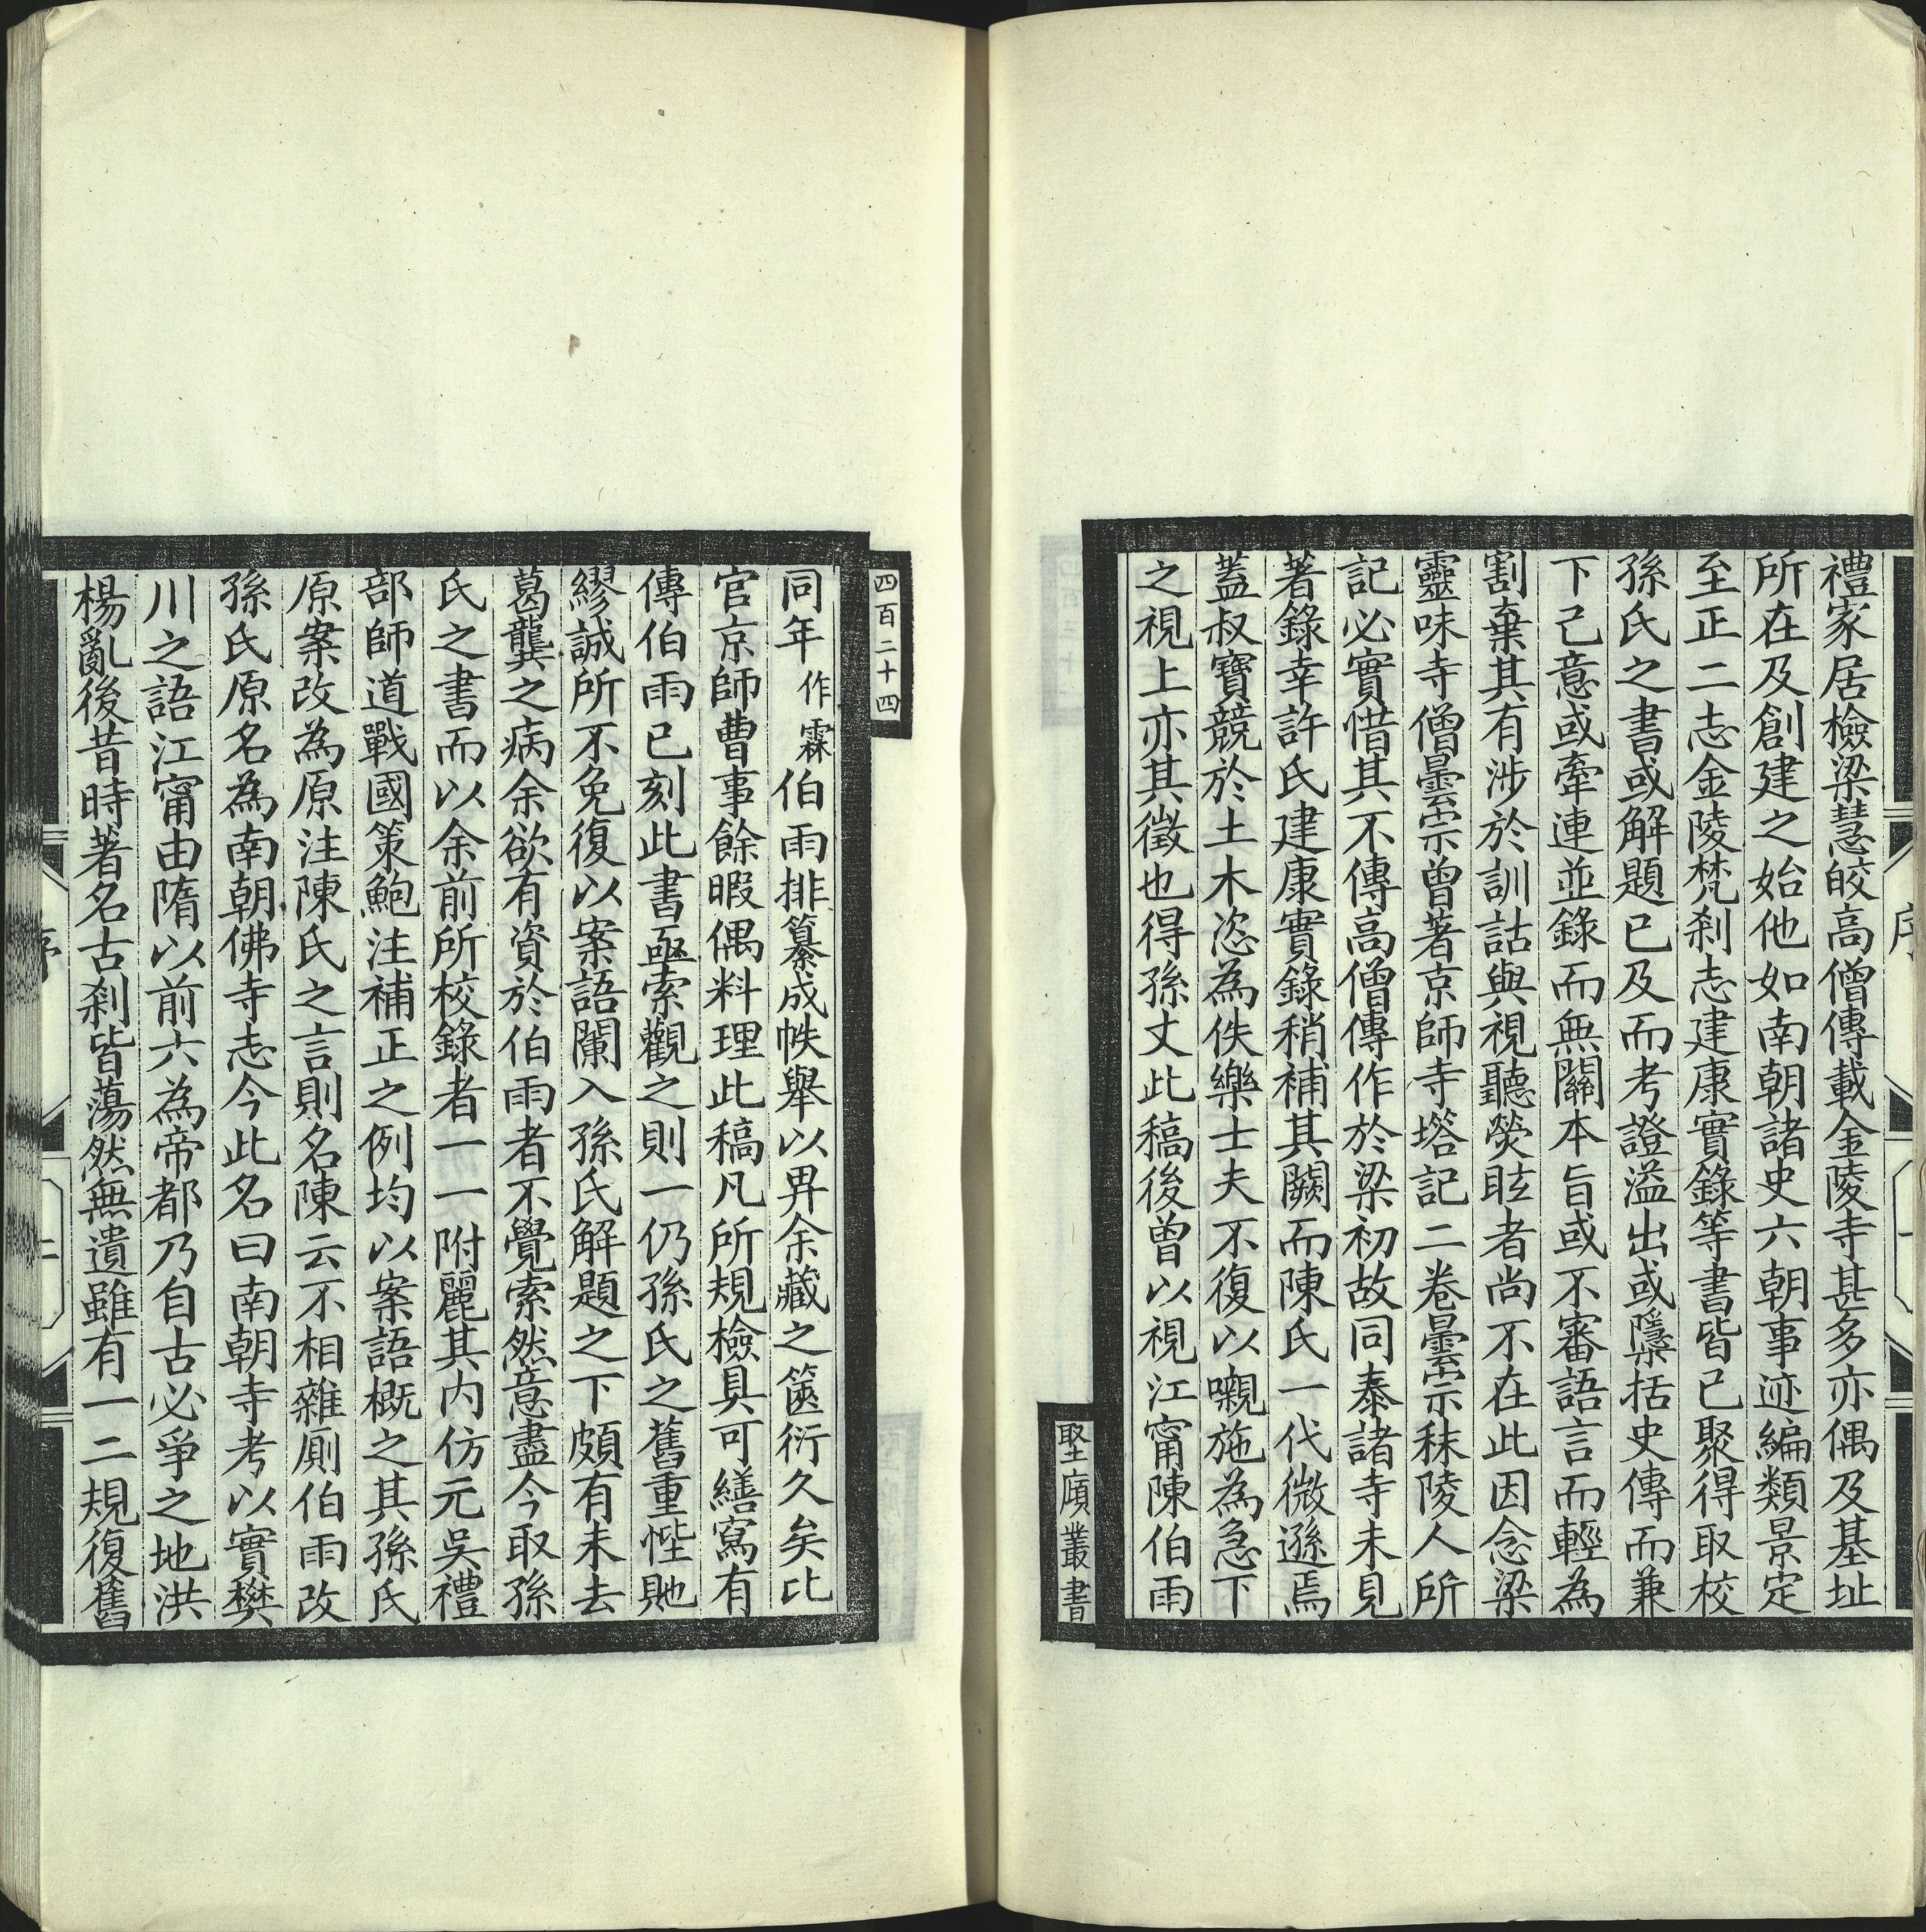 禮家居檢梁慧皎高僧傳載金陵寺甚多亦偶及基址
所在及創建之始他如南朝諸史六朝事迹編類景定
至正二志金陵梵刹志建康實錄等書皆已聚得取校
孫氏之書或解題已及而考證溢出或隱括史傳而兼
下己意或牽連並錄而無關本旨或不審語言而輕為
割棄其有涉於訓詁與視聽熒眩者尚不在此因念梁
靈味寺僧曇宗曾著京師寺塔記二卷曇宗秣陵人所
記必實惜其不傳高僧傳作於梁初故同泰諸寺未見
著錄幸許氏建康實錄稍補其闕而陳氏一代微遜焉
蓋叔寶競於土木恣為佚樂士夫不復以嚫施為急下
之視上亦其徵也得孫丈此稿後曾以視江甯陳伯雨
堅廎叢書
四百二十四
同年作霖伯雨排纂成帙舉以畀余藏之篋衍久矣比
官京師曹事餘暇偶料理此稿凡所規檢具可繕寫有
傳伯雨已刻此書亟索觀之則一仍孫氏之舊重悂貤
繆誠所不免復以案語闌入孫氏解題之下頗有未去
葛龔之病余欲有資於伯雨者不覺索然意盡今取孫
氏之書而以余前所校錄者一一附麗其內仿元吳禮
部師道戰國策鮑注補正之例均以案語概之其孫氏
原案改為原注陳氏之言則名陳云不相雜廁伯雨改
孫氏原名為南朝佛寺志今此名曰南朝寺考以實樊
川之語江甯由隋以前六為帝都乃自古必爭之地洪
楊亂後昔時著名古刹皆蕩然無遺雖有一二規復舊